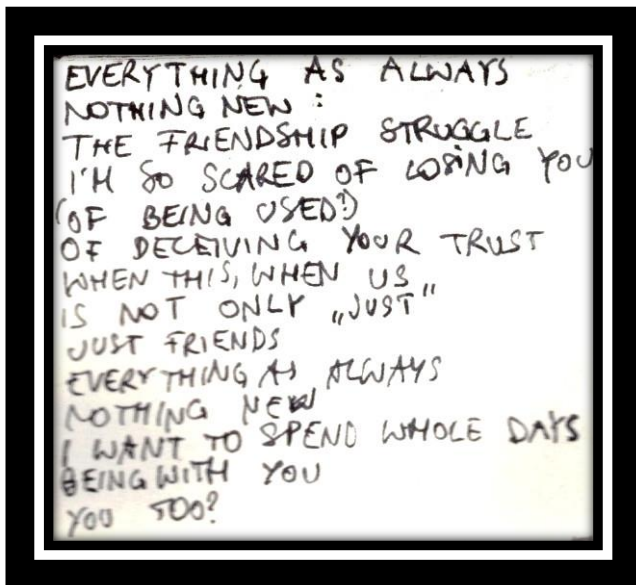 EVERYTHING AS ALWAYS
NOTHING NEW :
THE FRIENDSHIP STRUGGLE
I'M SO SCARED OF LOSING YOU
(OF BEING USED?)
OF DECEIVING YOUR TRUST
WHEN THIS, WHEN US
IS NOT ONLY „JUST"
JUST FRIENDS
EVERYTHING AS ALWAYS
NOTHING NEW
I WANT TO SPEND WHOLE DAYS
BEING WITH YOU
YOU TOO?